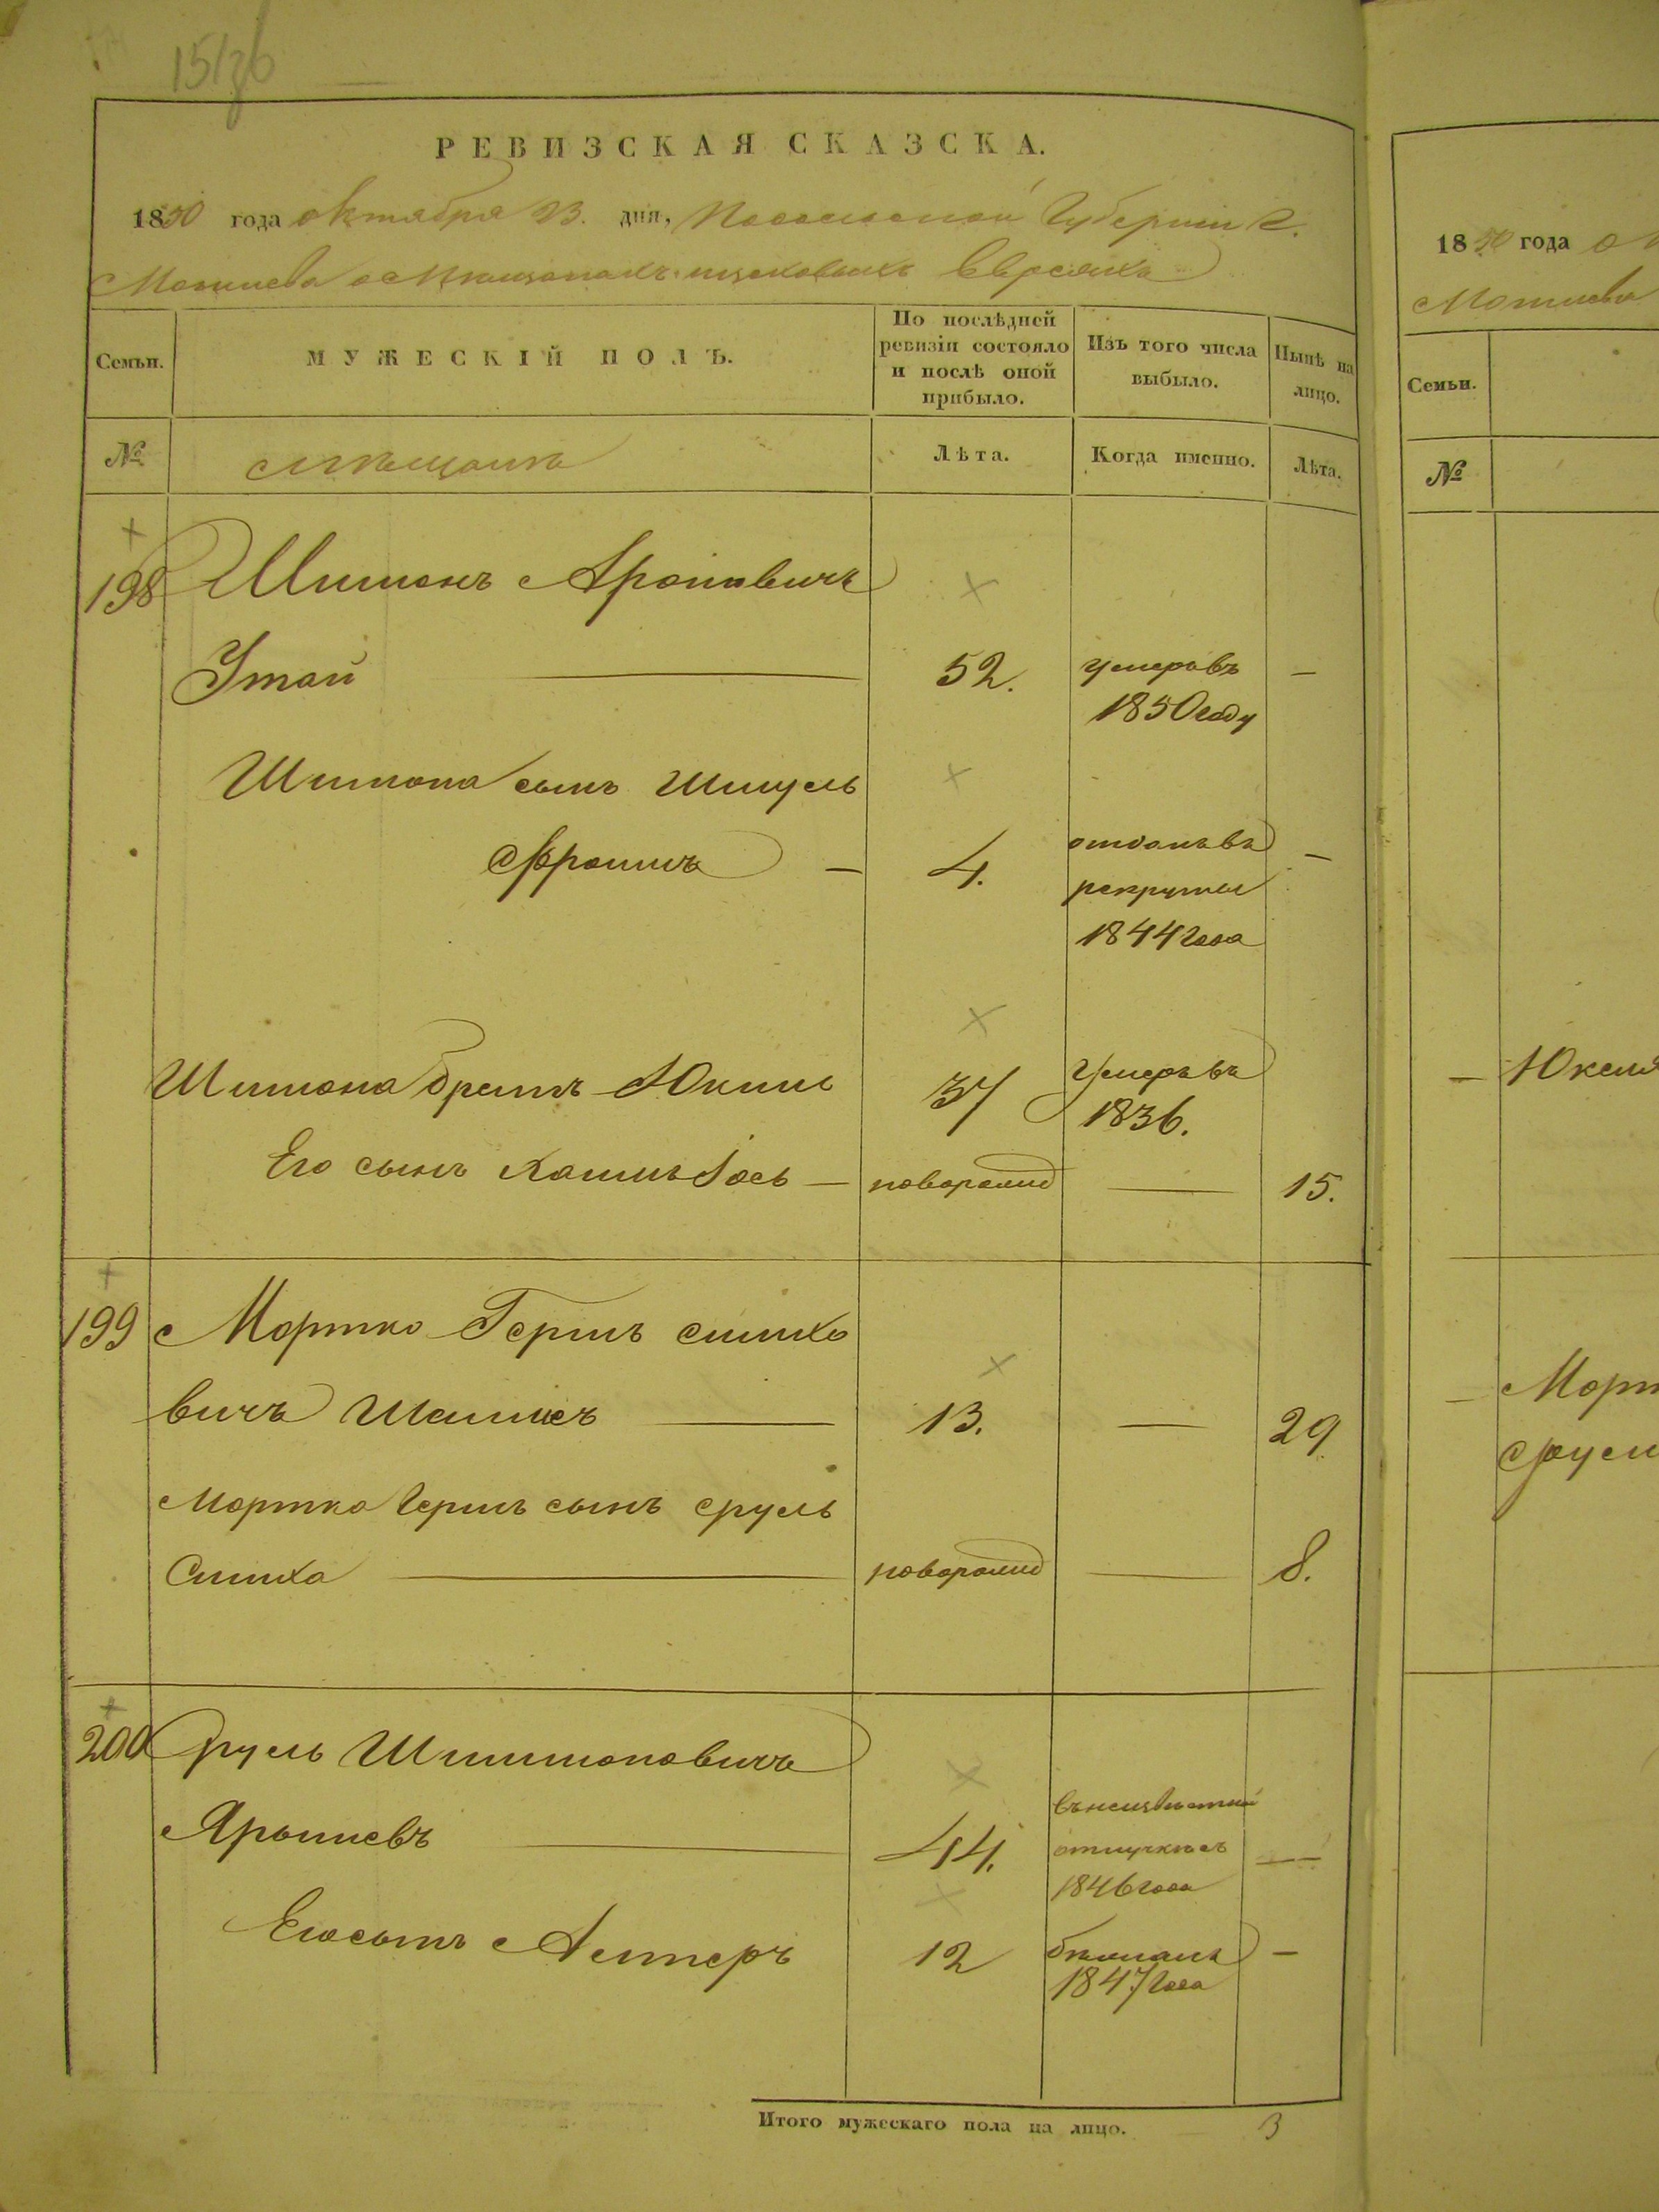 15136
РЕВИЗСКАЯ СКАЗСКА.
1850 года октября 23. дня, Подольской Губерніи г.
Могилева о мѣщанахъ цеховыхъ Евреяхъ
Семьи.
МУЖЕСКІЙ ПОЛЪ.
По послѣдней ревизіи состояло и послѣ оной прибыло.
Изъ того числа выбыло.
Нынѣ на лицо.
№
мѣщанъ
Лѣта.
Когда именно.
Лѣта.
198 Шимонъ Ароновичъ
52. умеръ въ —
1850 году
Шимона сынъ Шмуль
— 4. отданъ въ —
рекруты
1844 года
Шимона братъ Юкиль 37 Умеръ въ
1836.
Его сынъ Іось — новорожд — 15.
199 Мортко Гершъ Симхо
вичъ — 13. — 29
Мортко Герша сынъ Сруль
Симха — новорожд — 8.
200 Сруль Шимоновичъ
44. въ неизвѣстной
отлучкѣ съ —
1846 года
Его сынъ 12 —
1847 года
Итого мужескаго пола на лицо. 3
1850 года
Могилева
Семьи.
№
— Юкеля
— Морт
Сруля